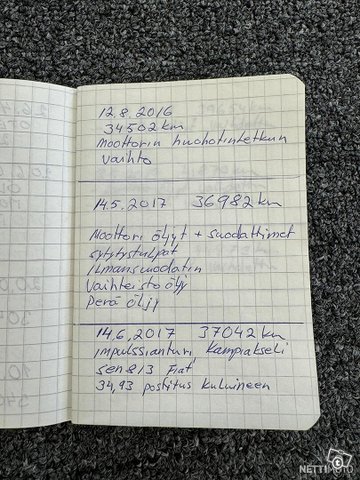 12.8.2016
34502 km
Moottorin huohotinletkun
vaihto
14.5.2017 36982 km
Moottori öljyt + suodattimet
sytytystulpat
ilmansuodatin
Vaihteisto öljy
Perä öljy
14.6.2017 37042 km
impulssianturi, Kampiakseli
sen 813 Fiat
34,93 postitus kuluineen
NETTIMOTO